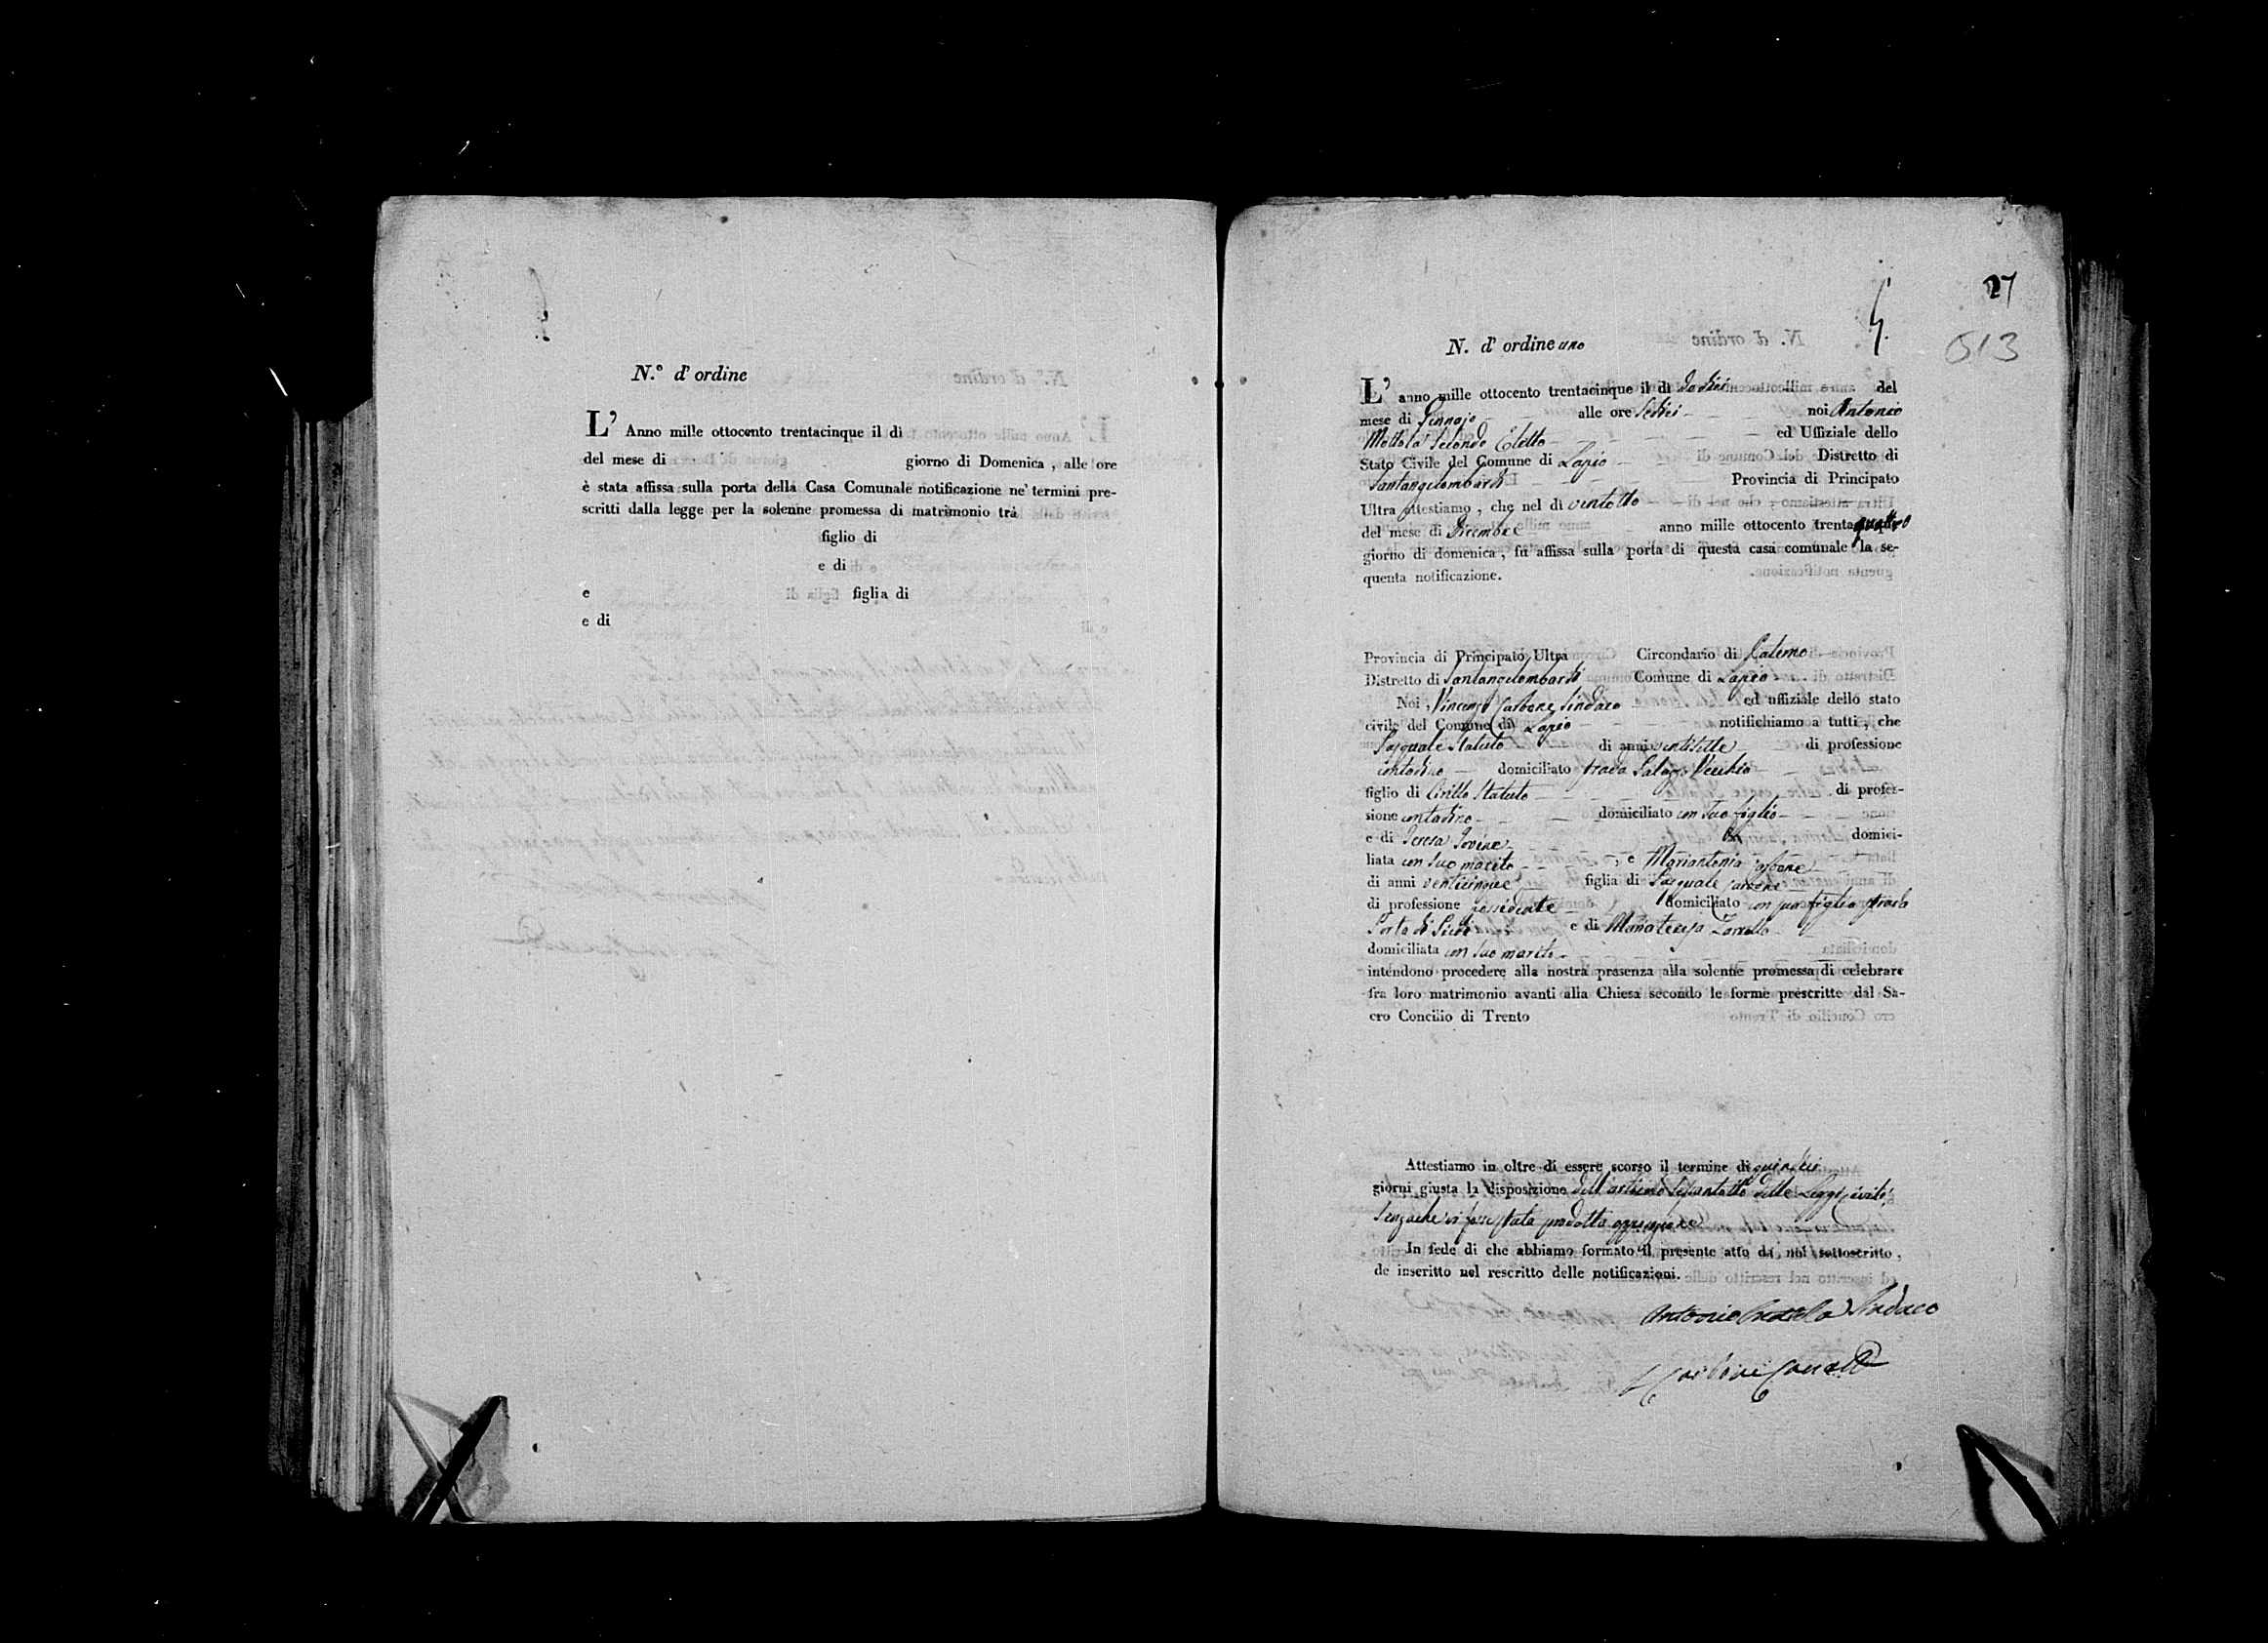 N.º d' ordine
L' Anno mille ottocento trentacinque il dì
del mese di giorno di Domenica , alle ore
è stata affissa sulla porta della Casa Comunale notificazione ne' termini pre-
scritti dalla legge per la solenne promessa di matrimonio trà
figlio di
e di
e figlia di
e di
27
513
N. d' ordine uno
L' anno mille ottocento trentacinque il dì dodici del
mese di Gennajo alle ore sedici noi Antonio
Mottola secondo Eletto ed Uffiziale dello
Stato Civile del Comune di Lapio Distretto di
Santangelombardi Provincia di Principato
Ultra attestiamo , che nel dì ventotto
del mese di Dicembre anno mille ottocento trentaquattro
giorno di domenica , fu affissa sulla porta di questa casa comunale la se-
guenta notificazione.
Provincia di Principato Ultra Circondario di Paterno
Distretto di Santangelombardi Comune di Lapio
Noi Vincenzo Carbone Sindaco ed uffiziale dello stato
civile del Comune di Lapio notifichiamo a tutti , che
Pasquale Statuto di anni ventisette di professione
contadino domiciliato strada Palazzo Vecchio
figlio di Cirillo Statuto di profes-
sione contadino domiciliato con suo figlio
e di Teresa Iovine domici-
liata con suo marito , e Mariantonia Carbone
di anni venticinque figlia di Pasquale Carbone
di professione possidente domiciliato con sua figlia strada
Porta di e di Mariateresa
domiciliata con suo marito
intendono procedere alla nostra presenza alla solenne promessa di celebrare
fra loro matrimonio avanti alla Chiesa secondo le forme prescritte dal Sa-
cro Concilio di Trento
Attestiamo in oltre di essere scorso il termine di quindici
giorni giusta la disposizione dell'articolo settantotto delle Leggi civili
senzache vi fosse stata prodotta opposizione
In fede di che abbiamo formato il presente atto da noi sottoscritto ,
de inscritto nel rescritto delle notificazioni.
Antonio Mottola Sindaco